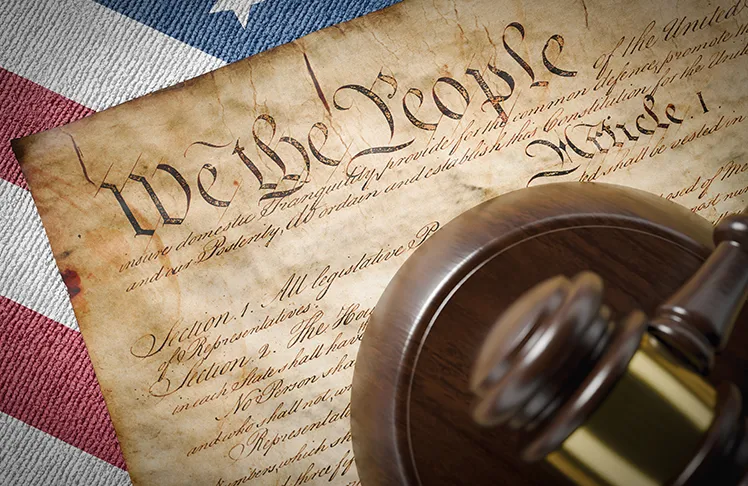 We the People of the United
insure domestic Tranquility, provide for the common defence, promote the
and our Posterity, do ordain and establish this Constitution for the Unit
Article 1.
Section. 1. All legislative P
shall be vested in
of Representatives.
Section. 2. The Hou
in each State shall hav
No Person sha
and who shall not, w
Representat
mbers, which sh
three f